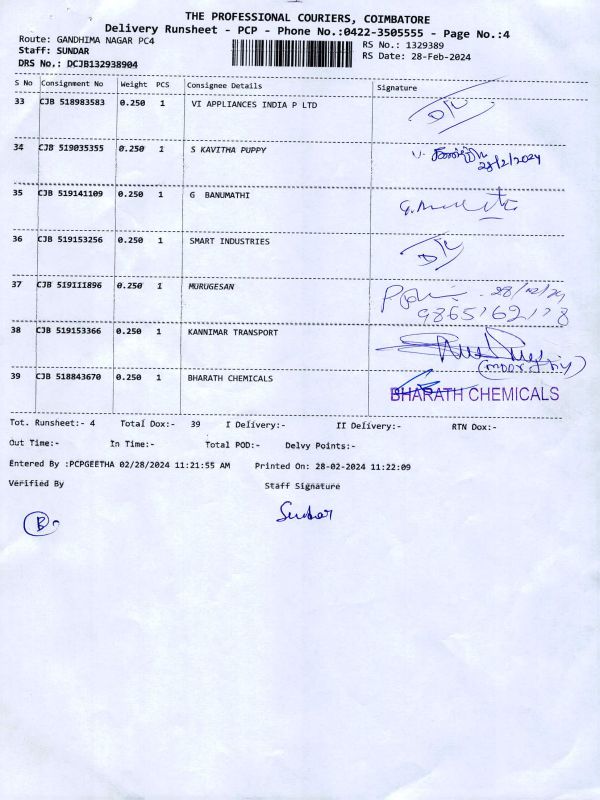 THE PROFESSIONAL COURIERS, COIMBATORE
Delivery Runsheet - PCP - Phone No.:0422-3505555 - Page No.:4
Route: GANDHIMA NAGAR PC4
RS No.: 1329389
Staff: SUNDAR
RS Date: 28-Feb-2024
DRS No.: DCJB132938904
S No Consignment No Weight PCS Consignee Details Signature
33 CJB 518983583 0.250 1 VI APPLIANCES INDIA P LTD
34 CJB 519035355 0.250 1 S KAVITHA PUPPY
28/2/2024
35 CJB 519141109 0.250 1 G BANUMATHI
36 CJB 519153256 0.250 1 SMART INDUSTRIES
37 CJB 519111896 0.250 1 MURUGESAN
38 CJB 519153366 0.250 1 KANNIMAR TRANSPORT
39 CJB 518843670 0.250 1 BHARATH CHEMICALS BHARATH CHEMICALS
Tot. Runsheet:- 4 Total Dox:- 39 I Delivery:- II Delivery:- RTN Dox:-
Out Time:- In Time:- Total POD:- Delvy Points:-
Entered By :PCPGEETHA 02/28/2024 11:21:55 AM Printed On: 28-02-2024 11:22:09
Verified By Staff Signature
B Sundar